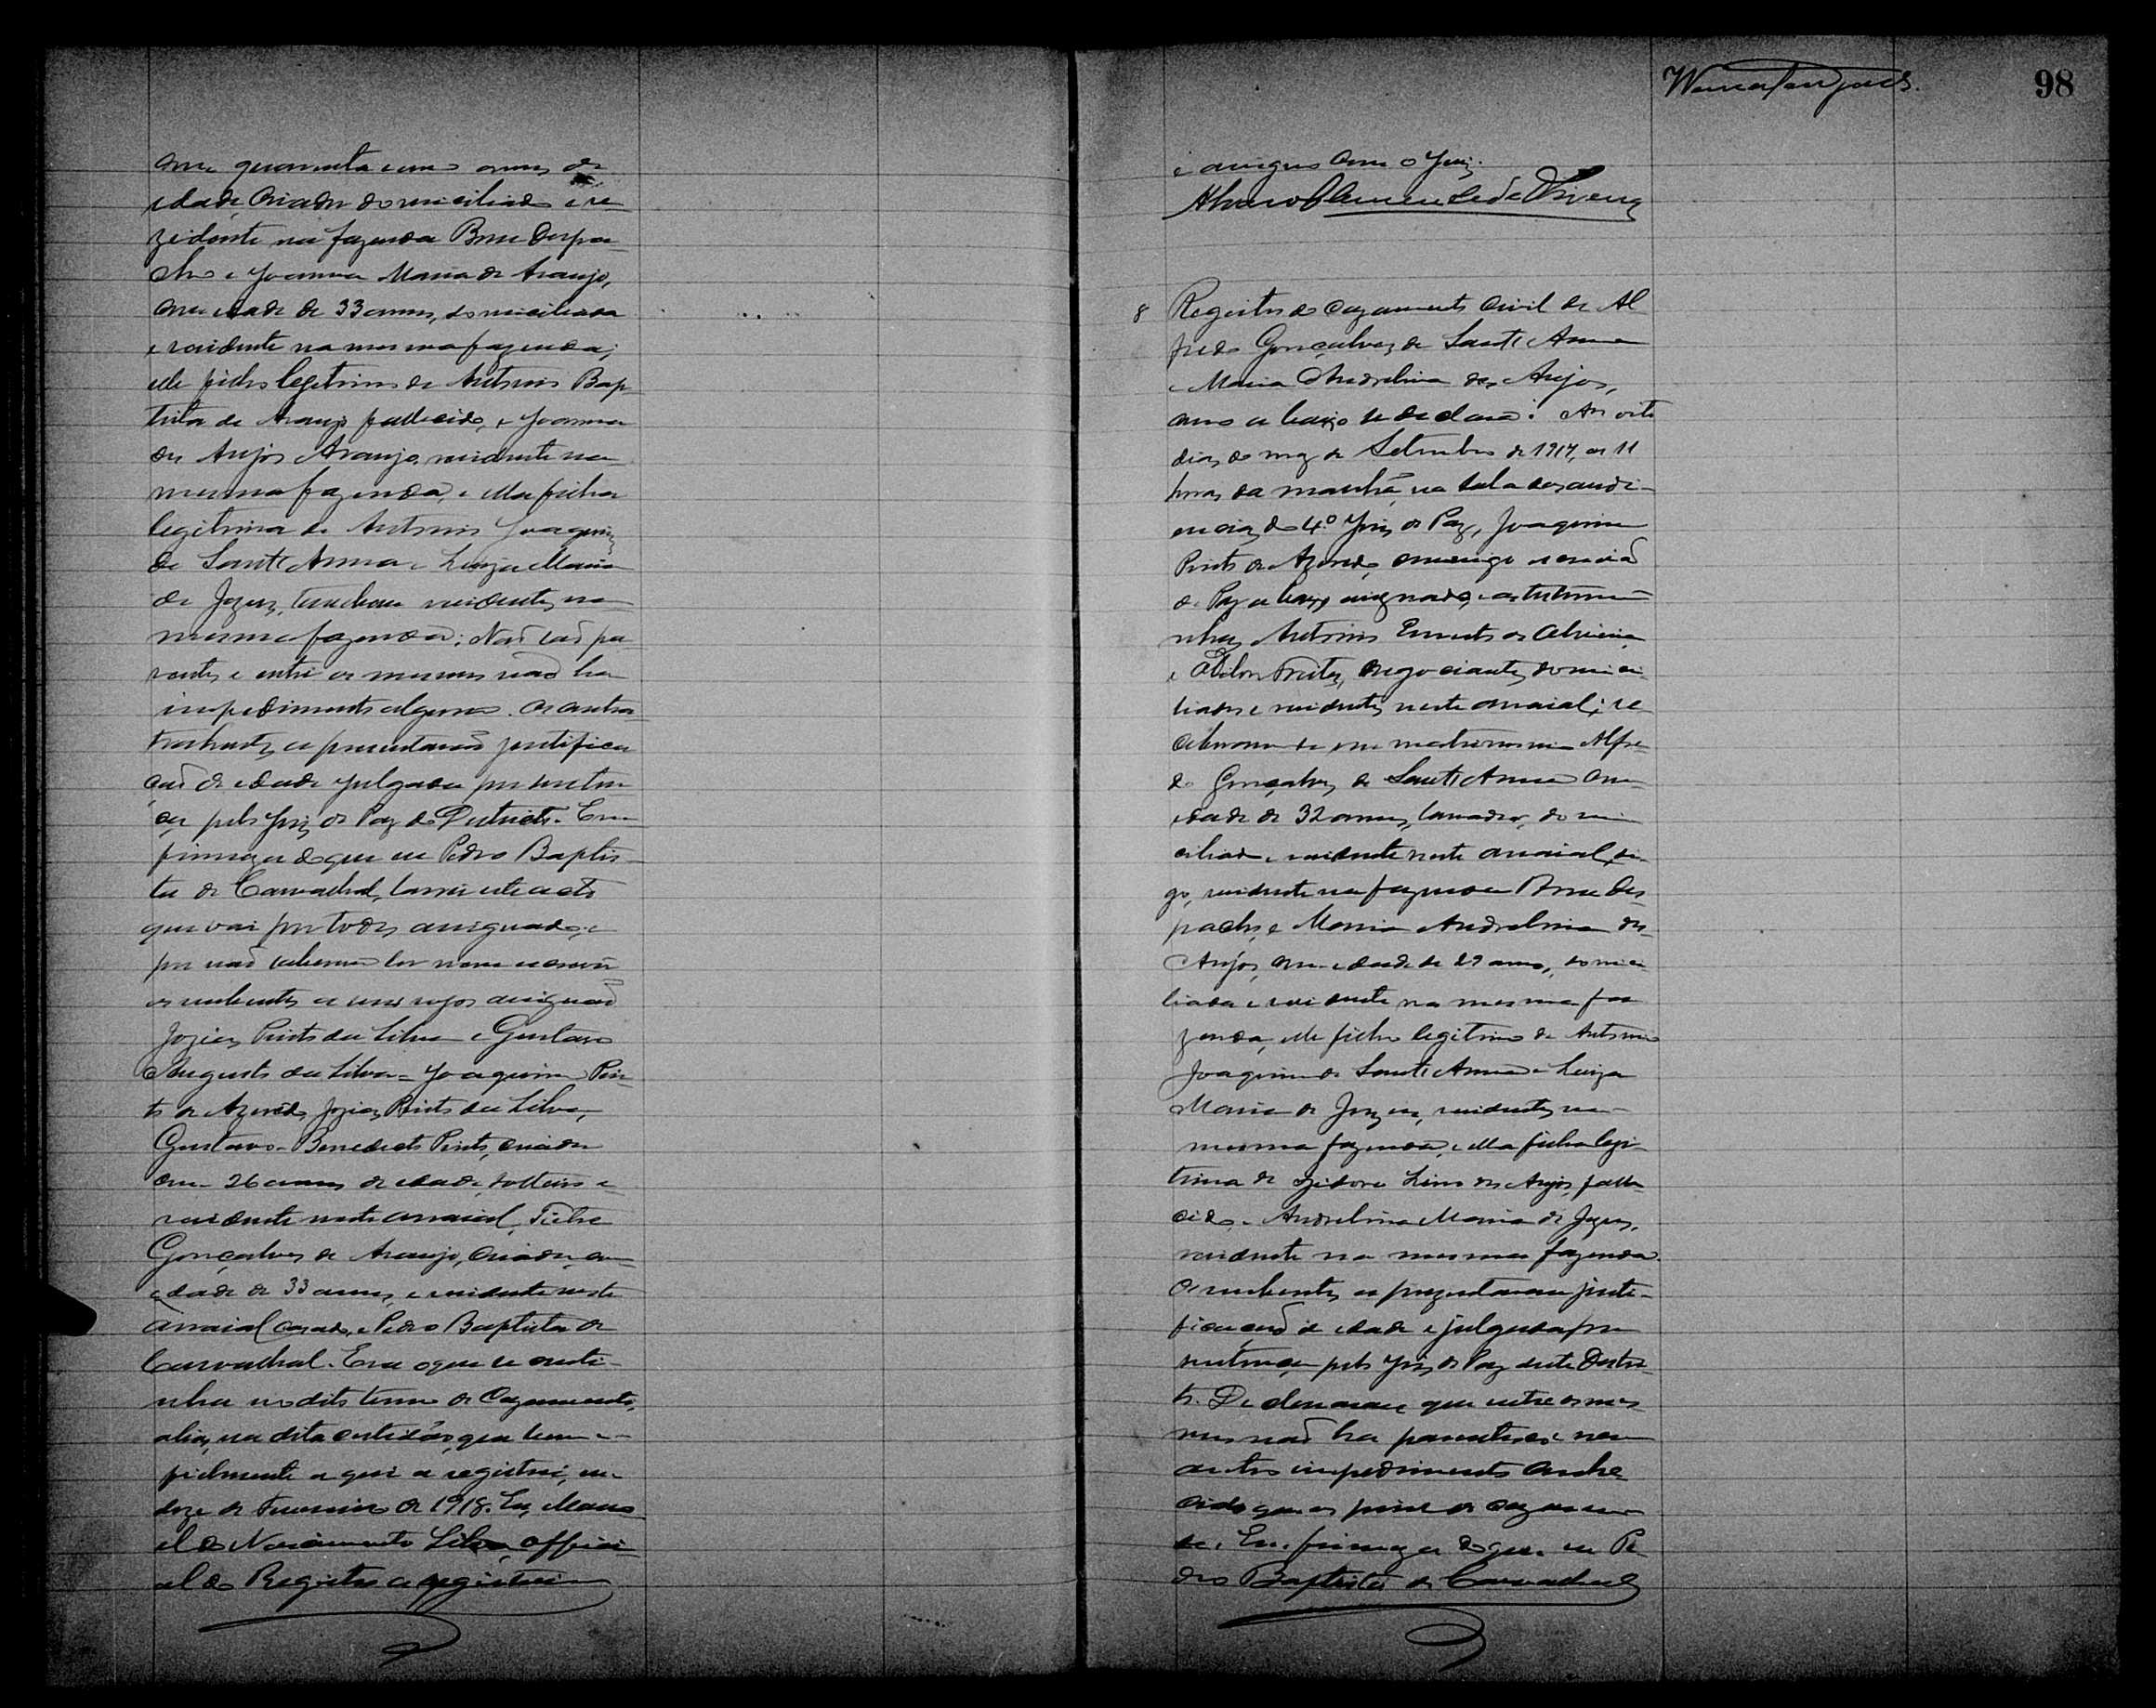 com quarenta e um annos de
idade, criador domiciliado e re
zidente na fazenda Bom Despa
cho e Joanna Maria de Araujo,
com idade de 33 annos, domiciliada
e residente na mesma fazenda;
elle filho legitimo de Antonio Bap
tista de Araujo fallecido, e Joanna
dos Anjos Araujo, residente na
mesma fazenda, e ella filha
legitima de Antonio Joaquim
de Sant'Anna e Luiza Maria
de Jezus, tambem residentes na
mesma fazenda; Não são pa
rentes e entre os mesmos não ha
impedimento algum. Os contra
hentes apresentarão justifica
ção de idade julgada por senten
ça pelo Juiz de Paz do Districto. Em
firmeza do que eu Pedro Baptis
ta de Carvalhal, lavrei este acto
que vai por todos assignado, e
por não saberem ler nem escrever
os nubentes a seus rogos assignão
Jozias Pinto da Silva e Gustavo
Augusto da Silva = Joaquim Pin
to de Azevedo, Jozias Pinto da Silva,
Gustavo Benedicto Pinto, criador
com 26 annos de idade, solteiro e
residente neste arraial,
Gonçalves de Araujo, criador, com
idade de 33 annos, e residente neste
arraial casado, e Pedro Baptista de
Carvalhal. Era o que se conti
nha no dito termo de Cazamento,
alias, na dita certidão, que bem e
fielmente aqui a registrei, em
doze de Fevereiro de 1918. Eu, Mano
el do Nascimento Silva, offici
al do Registro a registrei
98
e assigno com o Juiz.
Alvaro Clemente de Oliveira
8 Registro do cazamento Civil de Al
fredo Gonçalves de Sant'Anna
e Maria Andrelina dos Anjos,
como abaixo se declara: Aos oito
dias do mez de Setembro de 1917, as 11
horas da manhã, na sala das audi
encias do 4º Juiz de Paz, Joaquim
Pinto de Azevedo, commigo escrivão
de Paz abaixo assignado, e as testemu
nhas Antonio Ernesto de Oliveira
e Odilon Freitas, negociantes, domici
liados e residentes neste arraial; re
ceberam-se em matrimonio Alfre
do Gonçalves de Sant'Anna com
idade de 32 annos, lavrador, domi
ciliado e residente neste arraial, di
go, residente na fazenda Bom Des
pacho, e Maria Andrelina dos
Anjos, com idade de 29 annos, domici
liada e residente na mesma fa
zenda, elle filho legitimo de Antonio
Joaquim de Sant'Anna e Luiza
Maria de Jezus, residentes na
mesma fazenda, e ella filha legi
tima de Izidoro Lino dos Anjos, falle
cido e Andrelina Maria de Jezus,
residente na mesma fazenda.
Os nubentes aprezentaram justi
ficação de idade e julgada por
sentença pelo Juiz de Paz deste Distric
to. Declararam que entre os mes
mos não ha parentesco nem
outro impedimento conhe
cido que os prive de cazarem
se. Em firmeza do que eu Pe
dro Baptista de Carvalhal